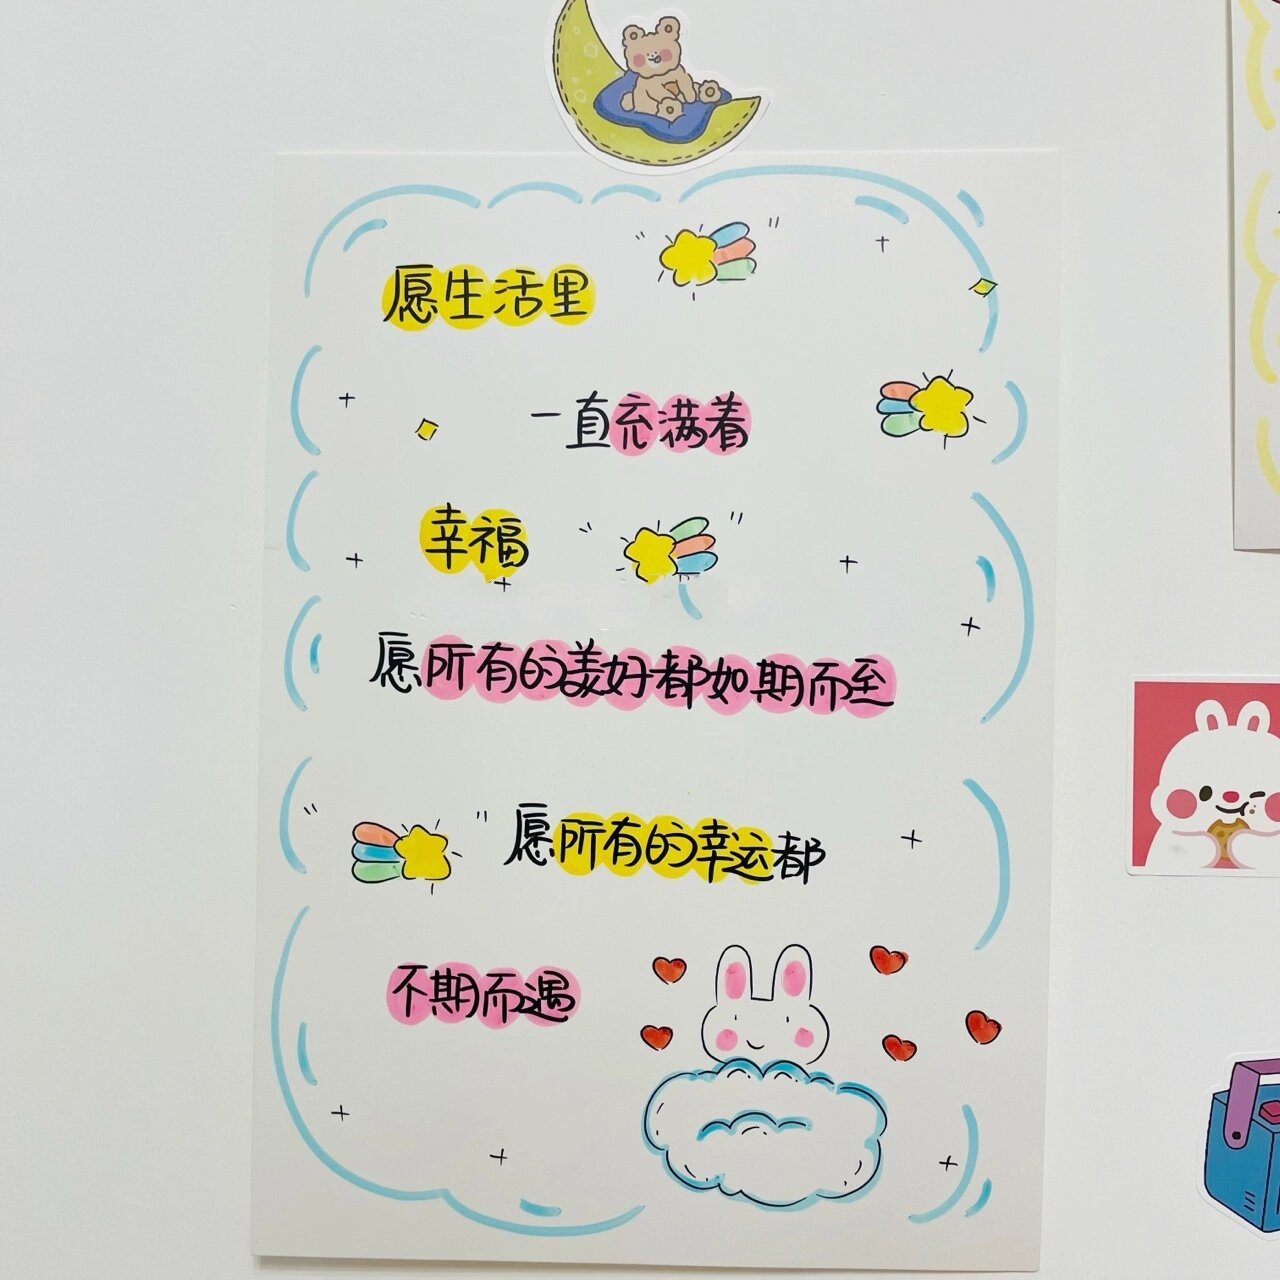 愿生活里
一直充满着
幸福
愿所有的美好都如期而至
愿所有的幸运都
不期而遇